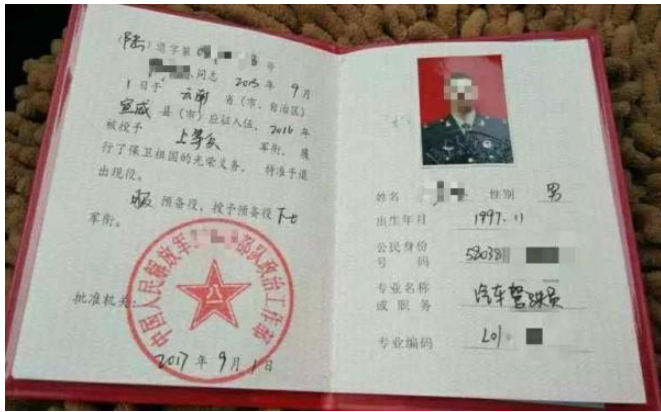 (陆)退字第 号
同志 2015 年 9 月
1 日于 云南 省(市、自治区)
宣威 县(市)应征入伍,2016 年
被授予 上等兵 军衔,履
行了保卫祖国的光荣义务,特准予退
出现役。
服 预备役,授予预备役 下士
军衔。
批准机关:
中国人民解放军 部队政治工作部
八一
2017 年 9 月 1 日
姓名 性别 男
出生年月 1997.11
公民身份
号码
专业名称 汽车驾驶员
或职务
专业编码